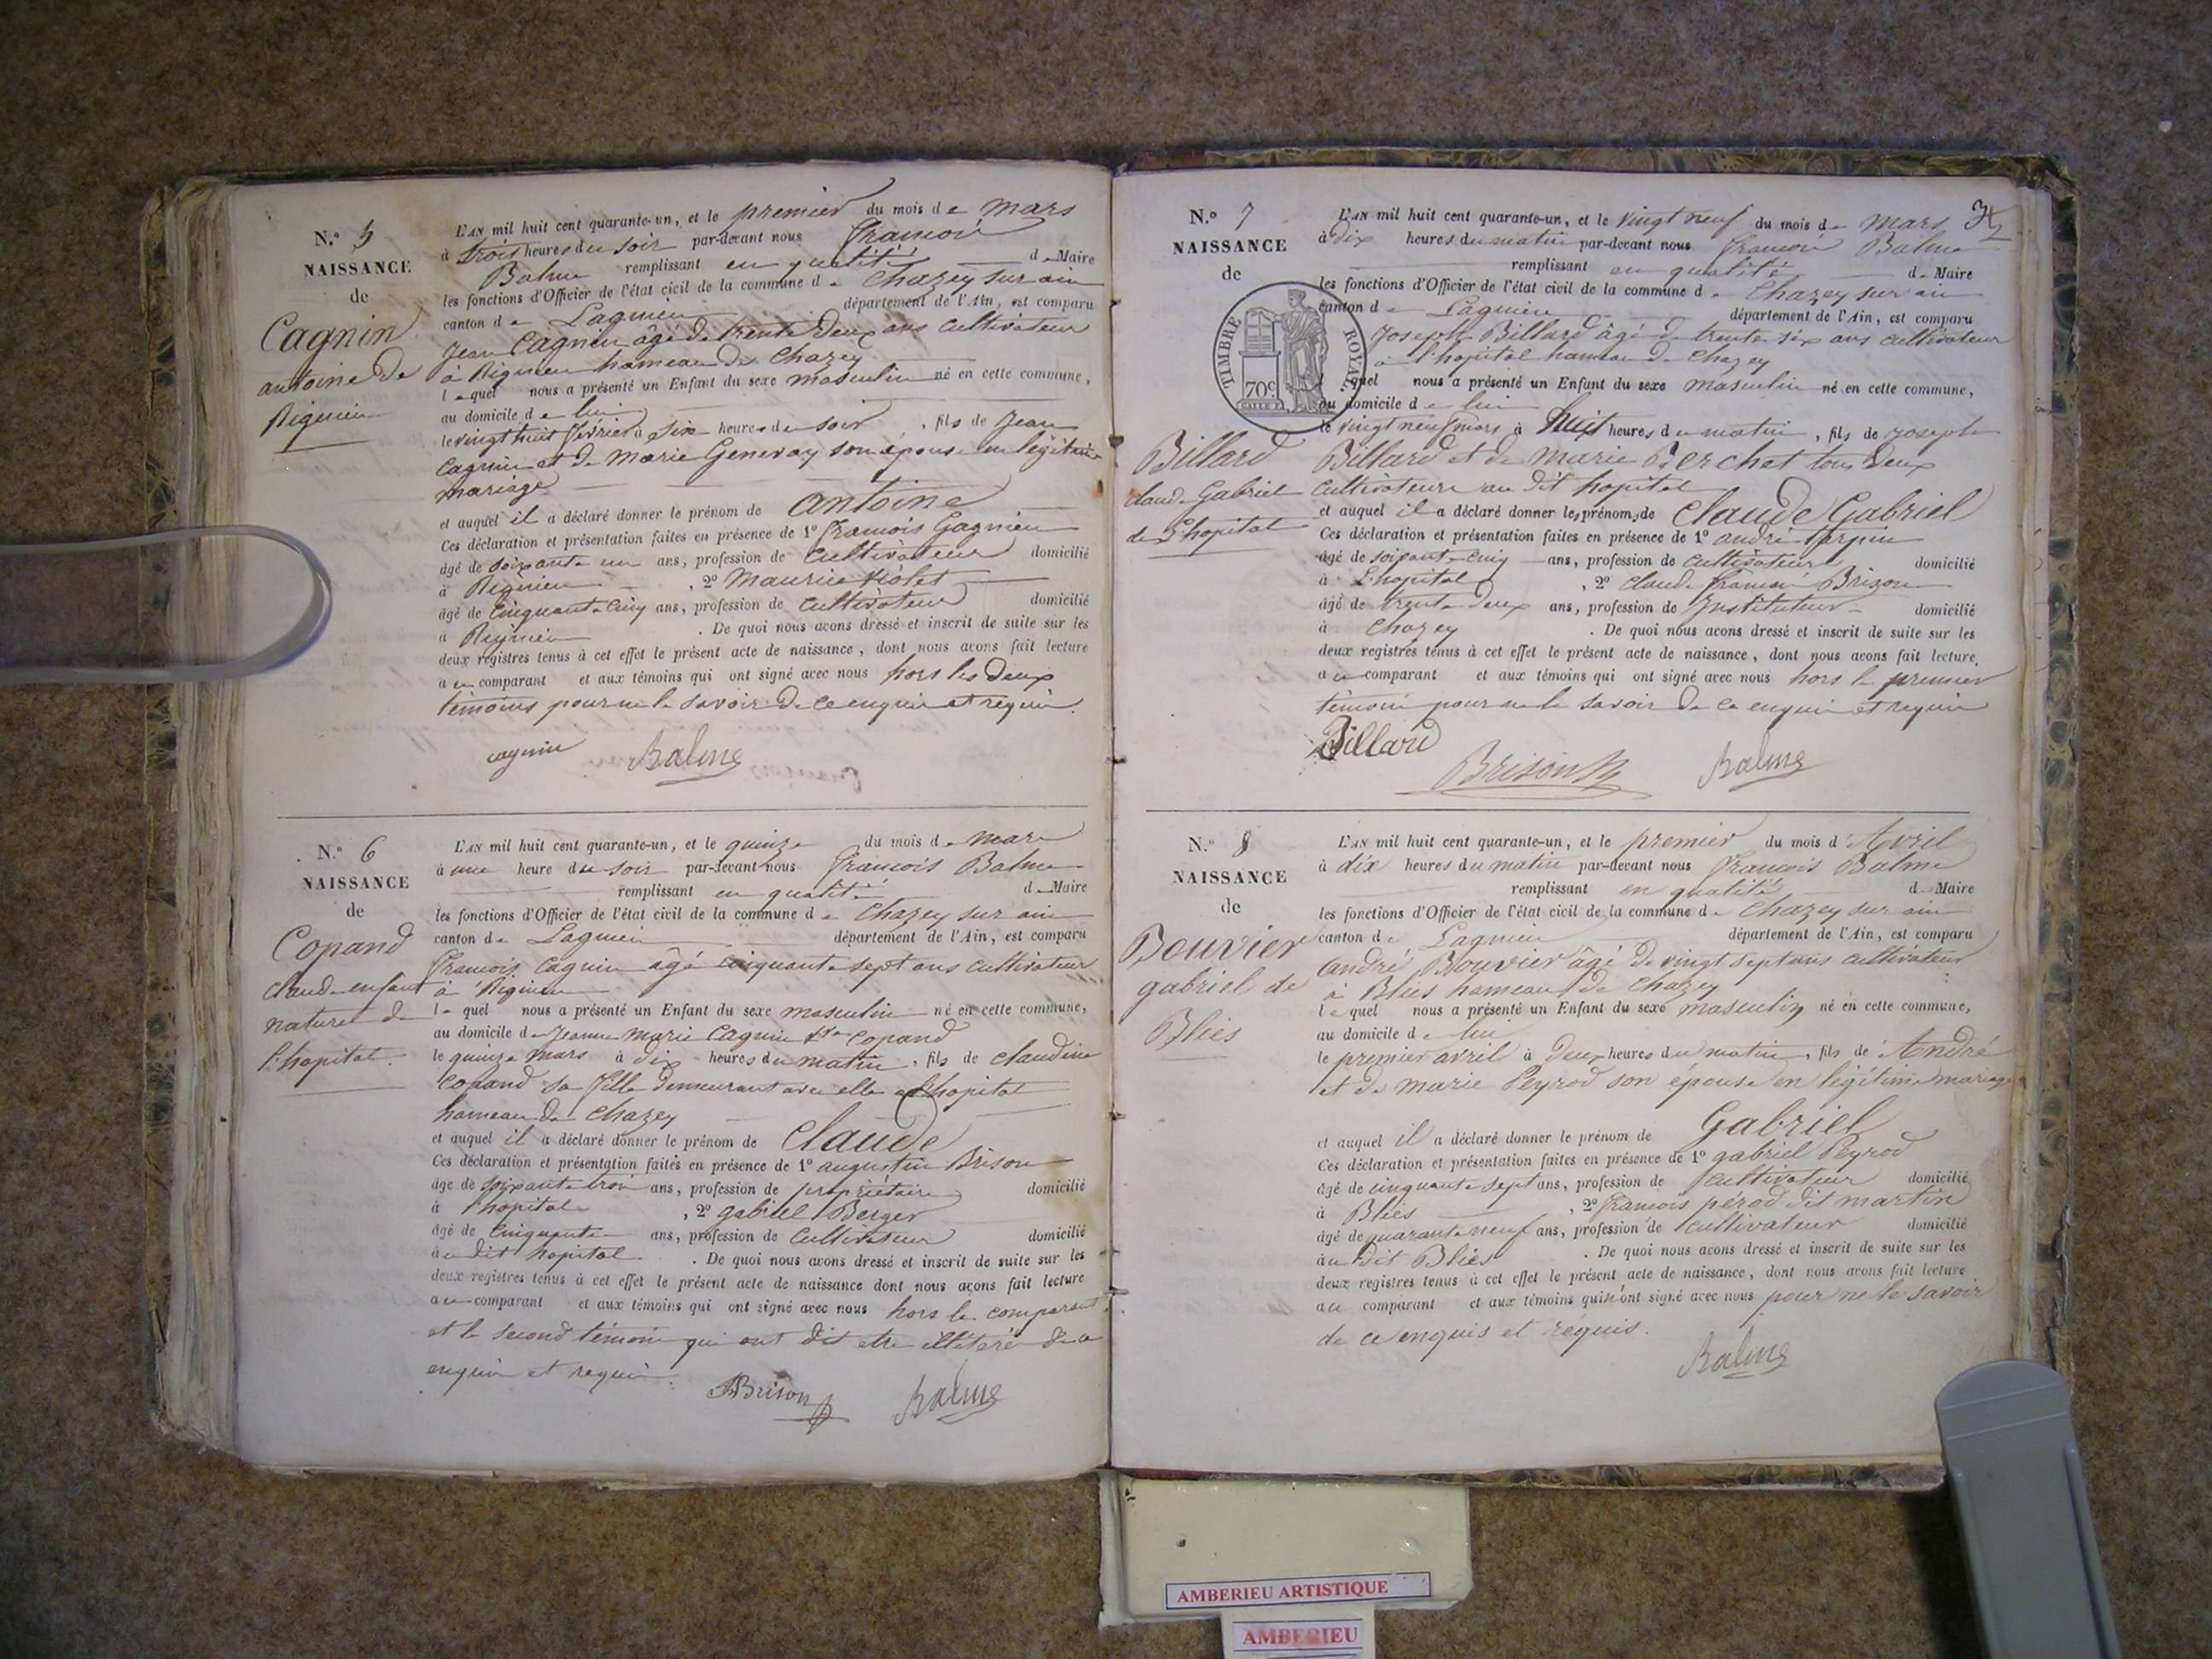 N.° 5
NAISSANCE
de
Cagnin
antoine de
Rignieu
L'AN mil huit cent quarante-un, et le premier du mois de mars
à trois heures du soir par-devant nous francois
Balme remplissant en qualité de Maire
les fonctions d'Officier de l'état civil de la commune de Chazey sur ain
canton de Lagnieu département de l'Ain, est comparu
Jean Cagnin âgé de trente deux ans cultivateur
à Rignieu hameau de Chazey
lequel nous a présenté un Enfant du sexe masculin né en cette commune,
au domicile de lui
le vingt huit février à six heures du soir, fils de Jean
Cagnin et de Marie Genevay son épouse en légitime
mariage
et auquel il a déclaré donner le prénom de antoine
Ces déclaration et présentation faites en présence de 1° francois Gagnieu
âgé de soixante un ans, profession de cultivateur domicilié
à Rignieu, 2° Maurice Violet
âgé de cinquante cinq ans, profession de cultivateur domicilié
à Rignieu. De quoi nous avons dressé et inscrit de suite sur les
deux registres tenus à cet effet le présent acte de naissance, dont nous avons fait lecture
au comparant et aux témoins qui ont signé avec nous hors les deux
témoins pour ne le savoir de ce enquis et requis.
cagnin Balme
N.° 6
NAISSANCE
de
Copand
claude enfant
naturel de
l'hopital.
L'AN mil huit cent quarante-un, et le quinze du mois de mars
à une heure du soir par-devant nous francois Balme
remplissant en qualité de Maire
les fonctions d'Officier de l'état civil de la commune de Chazey sur ain
canton de Lagnieu département de l'Ain, est comparu
francois Cagnin âgé cinquante sept ans cultivateur
à Rignieu
lequel nous a présenté un Enfant du sexe masculin né en cette commune,
au domicile de Jeanne Marie Cagnin Copand
le quinze mars à dix heures du matin, fils de claudine
Copand sa fille demeurant avec elle à l'hopital
hameau de Chazey
et auquel il a déclaré donner le prénom de Claude
Ces déclaration et présentation faites en présence de 1° augustin Brison
âgé de soixante trois ans, profession de propriétaire domicilié
à l'hopital, 2° gabriel Berger
âgé de cinquante ans, profession de cultivateur domicilié
au dit hopital. De quoi nous avons dressé et inscrit de suite sur les
deux registres tenus à cet effet le présent acte de naissance dont nous avons fait lecture
au comparant et aux témoins qui ont signé avec nous hors le comparant
et le second témoin qui ont dit etre illitéré de ce
enquis et requis.
Brison Balme
N.° 7
NAISSANCE
de
TIMBRE ROYAL
70 c.
Billard
claude Gabriel
de L'hopital
L'AN mil huit cent quarante-un, et le vingt neuf du mois de mars
à dix heures du matin par-devant nous francois Balme
remplissant en qualité de Maire
les fonctions d'Officier de l'état civil de la commune de Chazey sur ain
canton de Lagnieu département de l'Ain, est comparu
Joseph Billard âgé de trente six ans cultivateur
à l'hopital hameau de Chazey
lequel nous a présenté un Enfant du sexe masculin né en cette commune,
au domicile de lui
le vingt neuf mars à huit heures du matin, fils de Joseph
Billard et de Marie Perchet tous deux
cultivateurs au dit hopital
et auquel il a déclaré donner les prénoms de Claude Gabriel
Ces déclaration et présentation faites en présence de 1° andré
âgé de soixante cinq ans, profession de cultivateur domicilié
à L'hopital, 2° claude francois Brizon
âgé de trente deux ans, profession de Instituteur domicilié
à Chazey. De quoi nous avons dressé et inscrit de suite sur les
deux registres tenus à cet effet le présent acte de naissance, dont nous avons fait lecture
au comparant et aux témoins qui ont signé avec nous hors le premier
témoin pour ne le savoir de ce enquis et requis
Billard
Brison Balme
N.° 8
NAISSANCE
de
Bouvier
gabriel de
Blies
L'AN mil huit cent quarante-un, et le premier du mois d'Avril
à dix heures du matin par-devant nous francois Balme
remplissant en qualité de Maire
les fonctions d'Officier de l'état civil de la commune de Chazey sur ain
canton de Lagnieu département de l'Ain, est comparu
andré Bouvier âgé de vingt sept ans cultivateur
à Blies hameau de Chazey
lequel nous a présenté un Enfant du sexe masculin né en cette commune,
au domicile de lui
le premier avril à deux heures du matin, fils de André
et de marie Peyrod son épouse en légitime mariage
et auquel il a déclaré donner le prénom de Gabriel
Ces déclaration et présentation faites en présence de 1° gabriel Peyrod
âgé de cinquante sept ans, profession de cultivateur domicilié
à Blies, 2° francois perod dit martin
âgé de quarante neuf ans, profession de cultivateur domicilié
au dit Blies. De quoi nous avons dressé et inscrit de suite sur les
deux registres tenus à cet effet le présent acte de naissance, dont nous avons fait lecture
au comparant et aux témoins qui n'ont signé avec nous pour ne le savoir
de ce enquis et requis.
Balme
AMBERIEU ARTISTIQUE
AMBERIEU